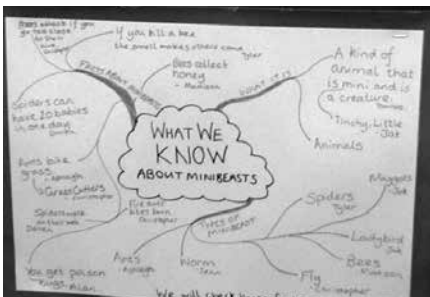 WHAT WE
KNOW
ABOUT MINIBEASTS
FACTS ABOUT MINIBEASTS
Bees attack if you
go too close
If you kill a bee
the smell makes others come
Tyler
Bees collect
honey
Spiders can
have 20 babies
in one day
Ants bite
grass
Grass Cutters
Christopher
Spiders
on their web
You get poison
bugs. Alan
Fire ants
bites burn
Christopher
WHAT IT IS
A kind of
animal that
is mini and is
a creature.
Tinchy, Little
Jak
Animals
TYPES OF
MINIBEAST
Spiders
Tyler
Maggots
Jak
Ladybird
Jak
Bees
Fly
Christopher
Worm
Ants
We will check